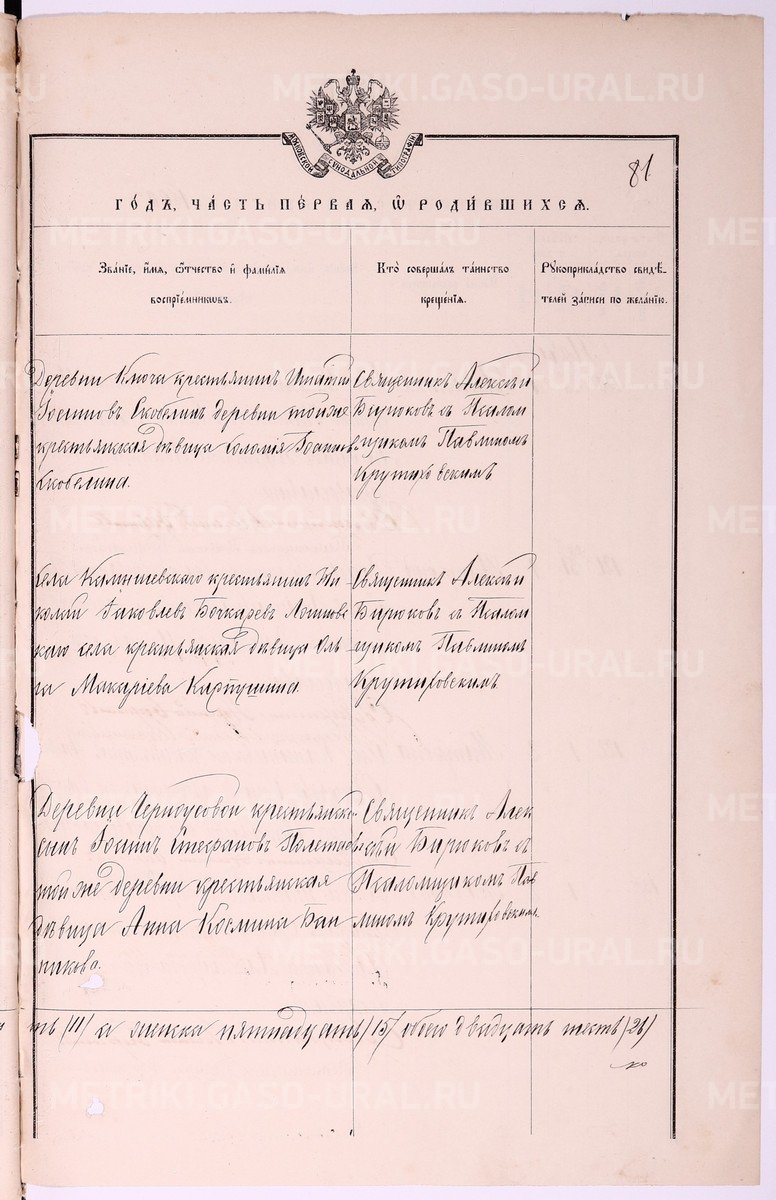 81
МОСКОВСКОЙ СѴНОДАЛЬНОЙ ТИПОГРАФІИ
ГО́ДЪ, ЧА́СТЬ ПЕ́РВАЯ, Ѡ РОДИ́ВШИХСЯ.
Зва́ніе, и҆́мя, ѻ҆́тчество и҆ фами́лія
воспріе́мниковъ.
Кто̀ соверша́лъ та́инство
креще́нія.
Рукоприкла́дство свидѣ́-
телей за́писи по жела́нію.
Деревни Ключа крестьянинъ Ипатій
Іоанновъ Скобелинъ деревни той же
крестьянская дѣвица Соломія Іоаннова
Скобелина.
Священникъ Алексѣй
Бирюковъ съ Псалом
щикомъ Павлиномъ
Крутиховскимъ
Села Камышевскаго крестьянинъ Ни-
колай Іаковлевъ Бочкаревъ Логинов
скаго села крестьянская дѣвица Оль-
га Макаріева Карпушина
Священникъ Алексѣй
Бирюковъ съ Псалом
щикомъ Павлиномъ
Крутиховскимъ
Деревни Черноусовой крестьянскій
сынъ Іоаннъ Стефановъ Полетаевъ
той же деревни крестьянская
дѣвица Анна Космина Бан
никова.
Священникъ Алек
сѣй Бирюковъ съ
Псаломщикомъ Пав
линомъ Крутиховскимъ
ть (11) а женска пятнадцать (15) обоего двадцать шесть (26)
METRIKI.GASO-URAL.RU